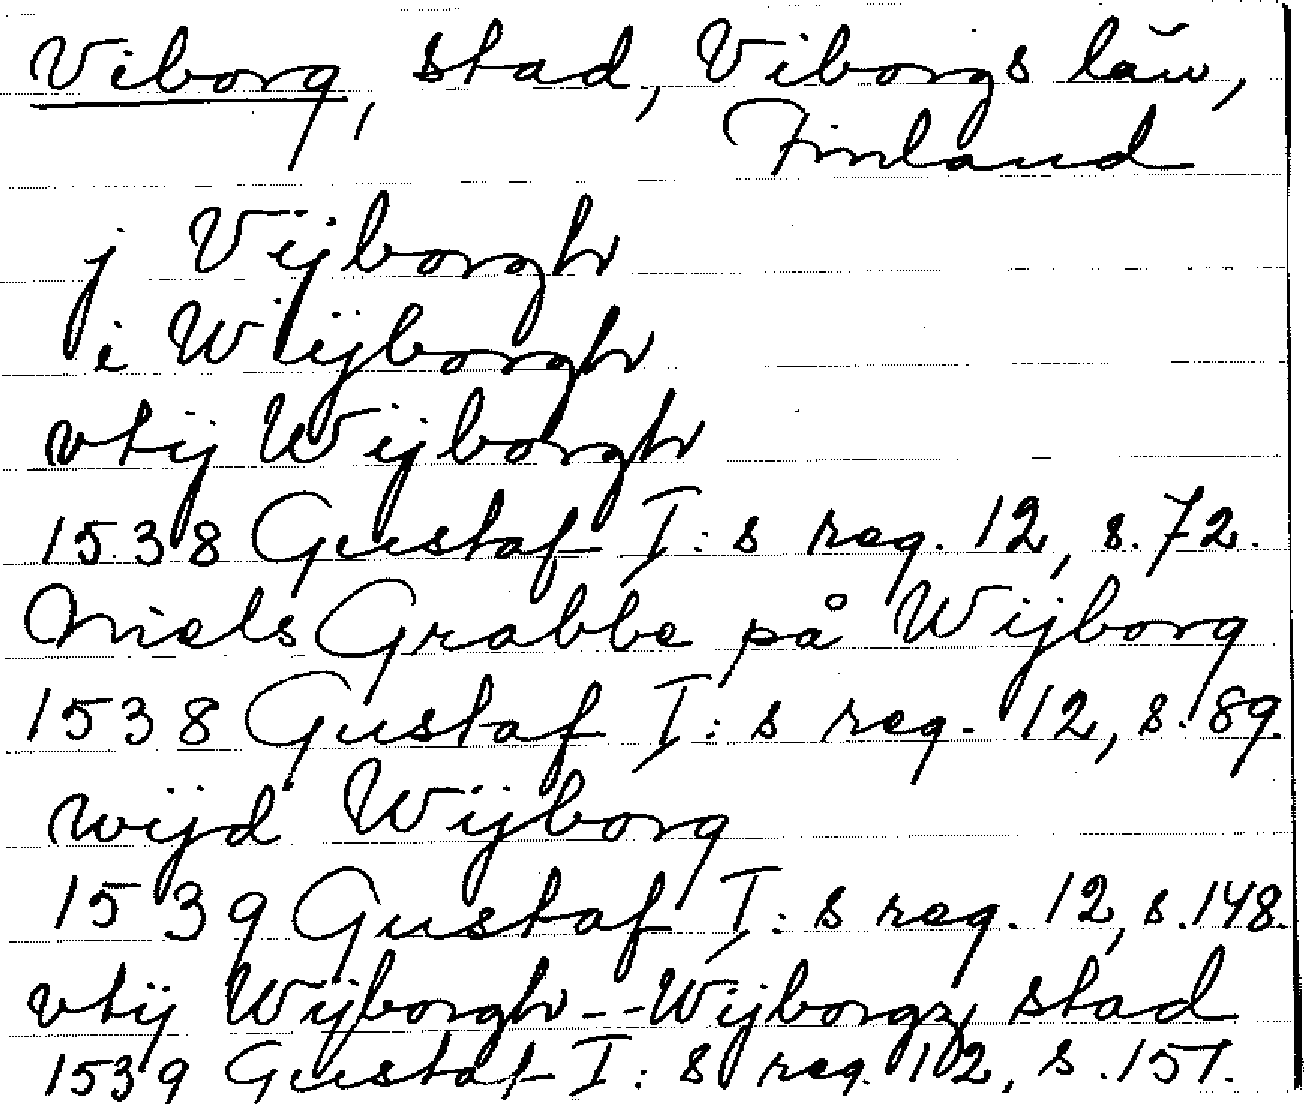 Viborg, stad, Viborgs län,
Finland
j Vijborgh
i Wijborgh
vtij Wijborgh
1538 Gustaf I:s reg. 12, s. 72.
Niels Grabbe på Wijborg
1538 Gustaf I:s reg. 12, s. 89.
wijd Wijborg
1539 Gustaf I:s reg. 12, s. 148.
vtij Wijborgh -- Wijborgz stad
1539 Gustaf I:s reg. 12, s. 157.